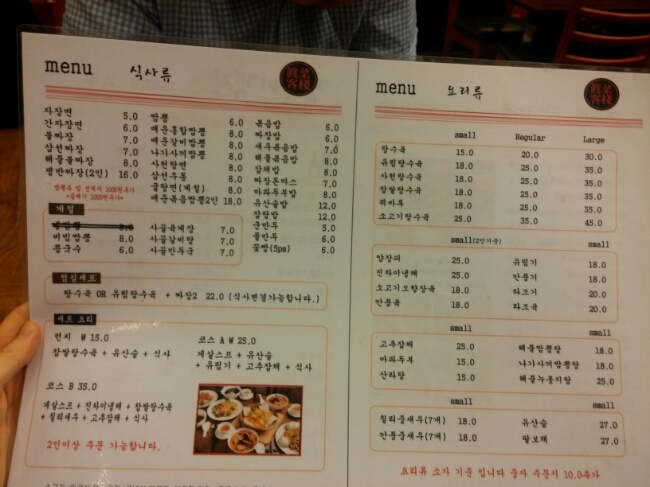 menu 식사류
자장면 5.0
간자장면 6.0
불짜장 7.0
삼선짜장 7.0
해물불짜장 8.0
쟁반짜장(2인) 16.0
짬뽕 6.0
매운홍합짬뽕 8.0
매운갈비짬뽕 8.0
나가사끼짬뽕 8.0
사천탕면 8.0
삼선우동 8.0
굴탕면(계절) 8.0
매운볶음짬뽕2인 18.0
볶음밥 6.0
짜장밥 6.0
새우볶음밥 7.0
해물볶음밥 8.0
잡채밥 8.0
짜장돈까스 7.0
마파두부밥 8.0
유산슬밥 12.0
잡탕밥 12.0
군만두 5.0
물만두 6.0
꽃빵(5ps) 6.0
계절
8.0
비빔짬뽕 8.0
콩국수 6.0
사골육개장 7.0
사골갈비탕 7.0
사골만두국 7.0
점심세트
탕수육 OR 유림탕수육 + 짜장2 22.0 (식사변경가능합니다.)
세트 요리
런치 W 15.0
찹쌀탕수육 + 유산슬 + 식사
코스 A W 25.0
게살스프 + 유산슬
+ 유림기 + 고추잡채 + 식사
코스 B 35.0
게살스프 + 진차이냉채 + 찹쌀탕수육
+ 칠리새우 + 고추잡채 + 식사
2인이상 주문 가능합니다.
menu 요리류
small Regular Large
탕수육 15.0 20.0 30.0
유림탕수육 18.0 25.0 35.0
사천탕수육 18.0 25.0 35.0
찹쌀탕수육 18.0 25.0 35.0
꿔바육 18.0 25.0 35.0
소고기탕수육 25.0 35.0 45.0
small(2인기준) small
양장피 25.0
진차이냉채 25.0
소고기오향장육 25.0
깐풍육 18.0
유림기 18.0
깐풍기 18.0
라조기 20.0
라조육 20.0
small small
고추잡채 25.0
마파두부 15.0
산라탕 15.0
해물짬뽕탕 18.0
나가사끼짬뽕탕 18.0
해물누룽지탕 25.0
small small
칠리중새우(7개) 18.0
깐풍중새우(7개) 18.0
유산슬 27.0
팔보채 27.0
요리류 소자 기준 입니다 중자 주문시 10.0추가